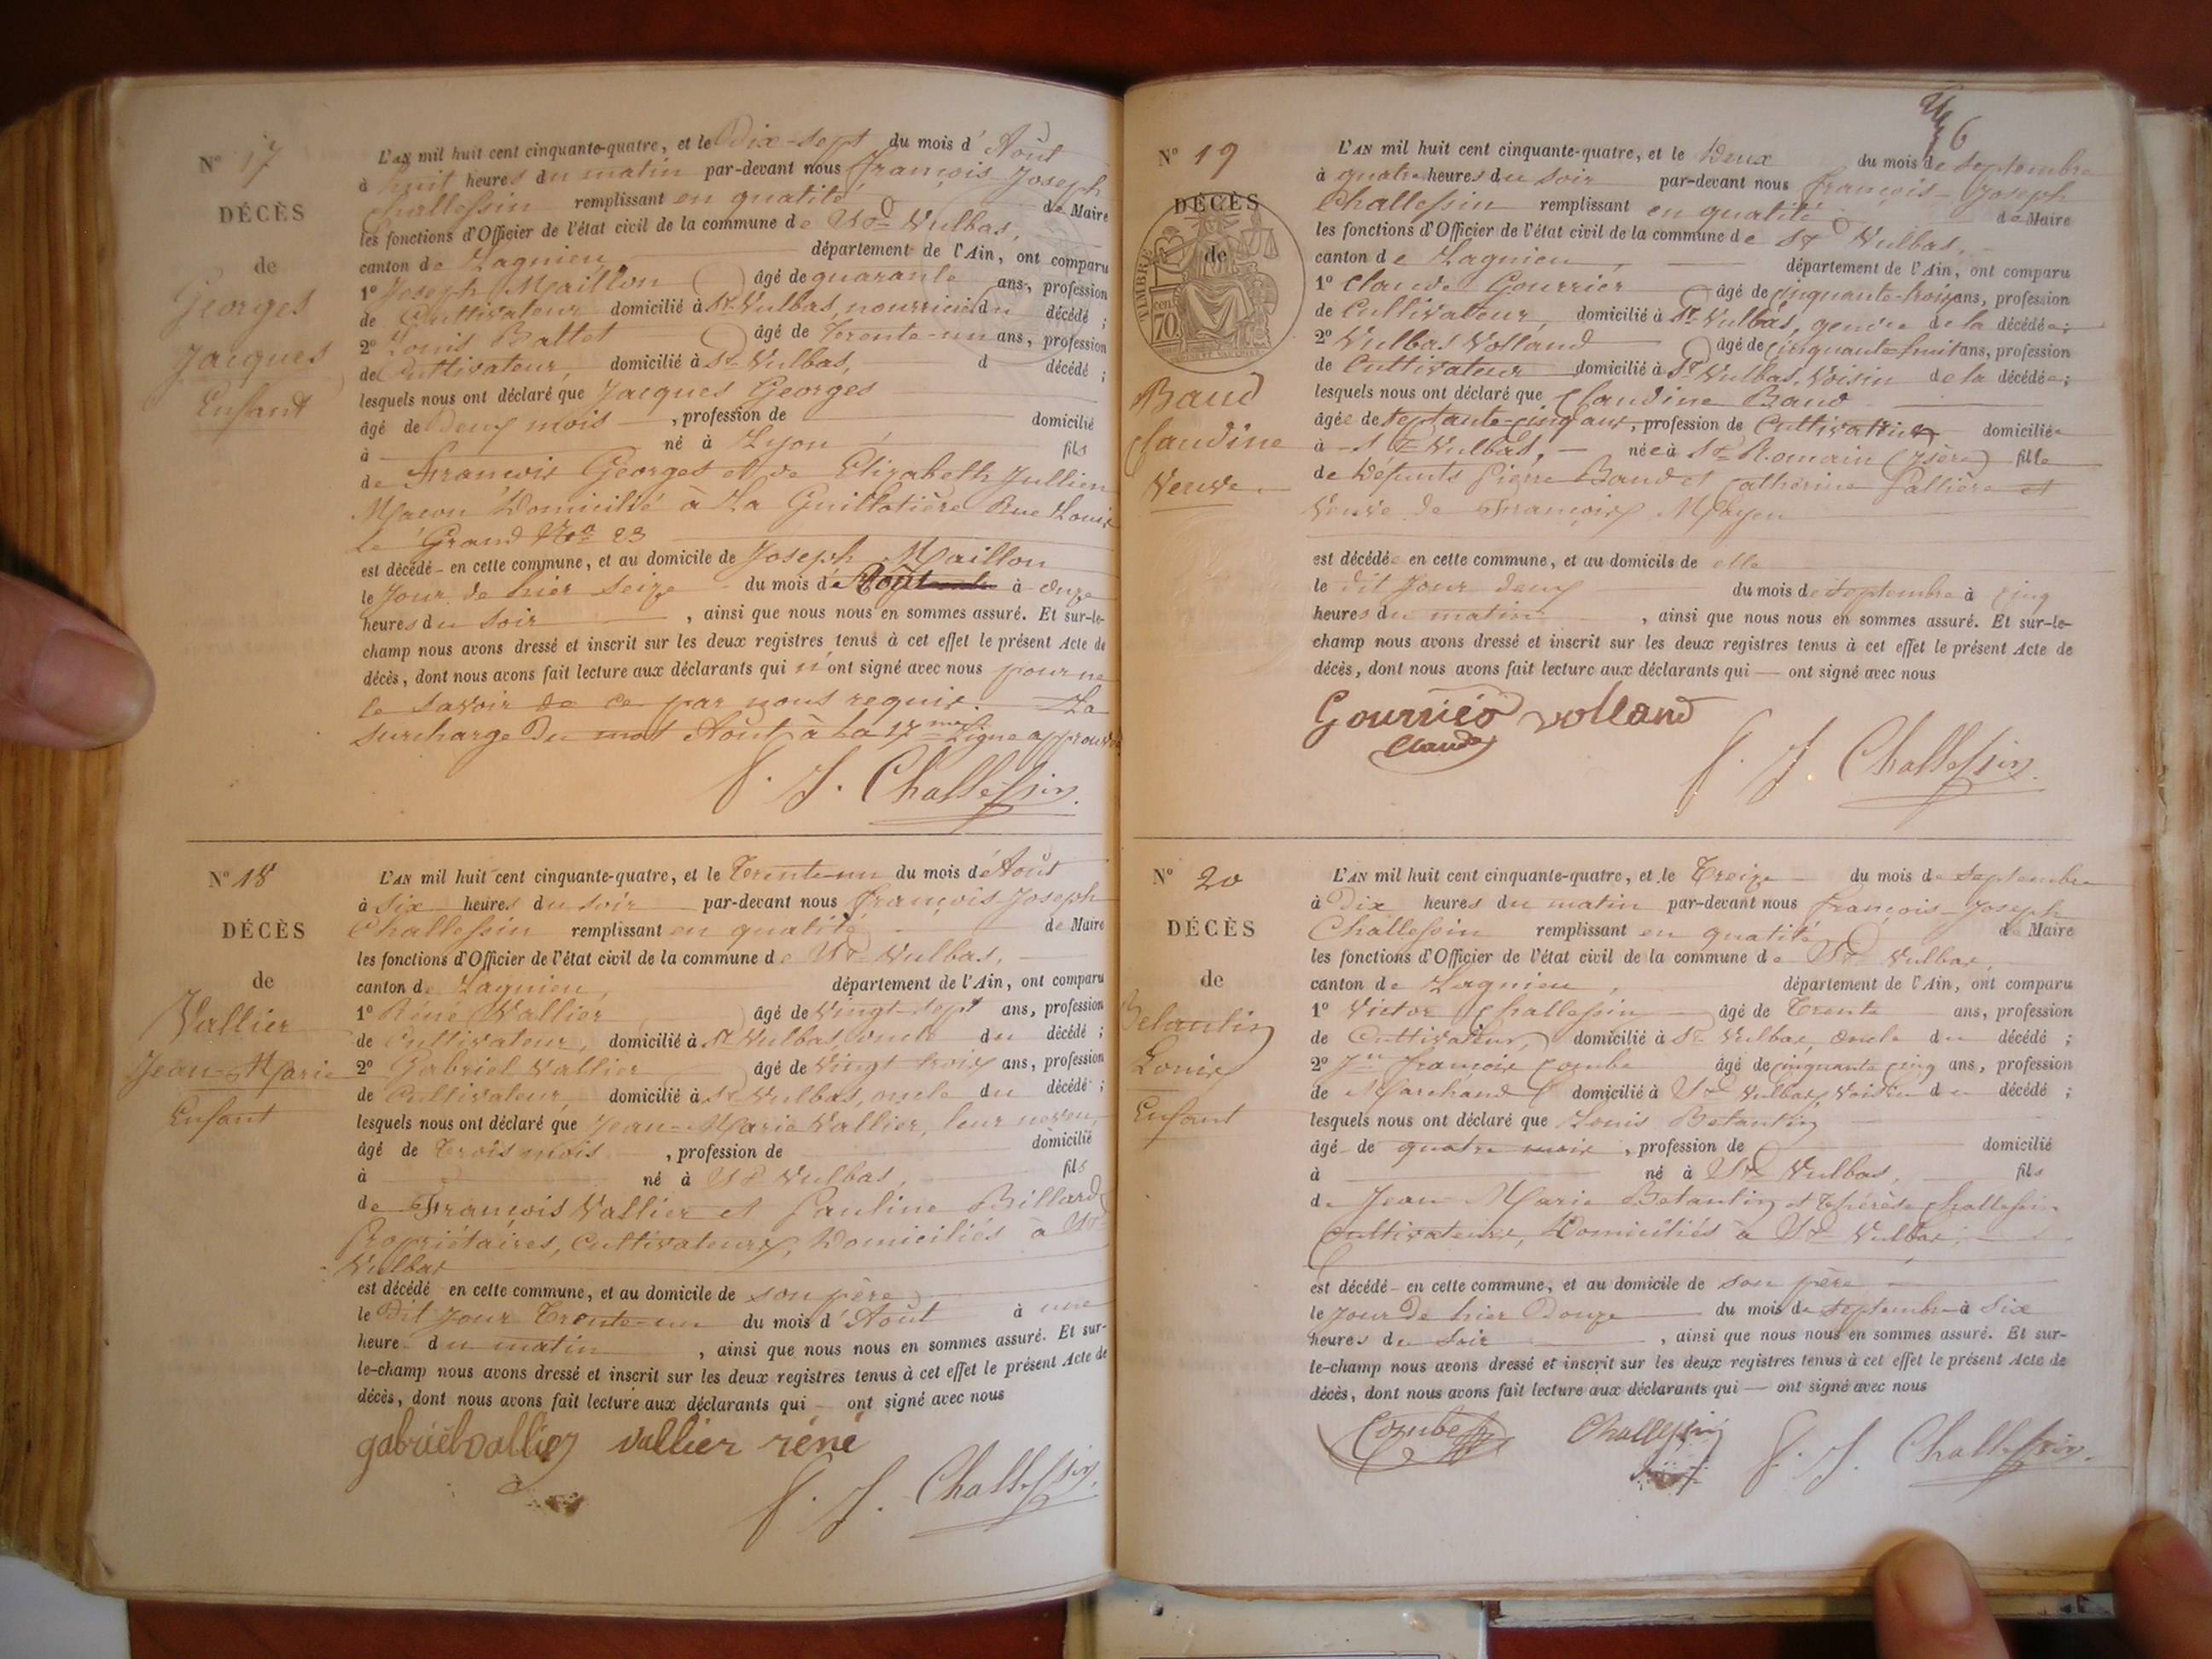 N° 17
DÉCÈS
de
Georges
Jacques
Enfant
L'AN mil huit cent cinquante-quatre, et le Dix-sept du mois d'Août
à huit heures du matin par-devant nous François Joseph
Challessin remplissant en qualité de Maire
les fonctions d'Officier de l'état civil de la commune de St Vulbas,
canton de Lagnieu département de l'Ain, ont comparu
1° Joseph Maillon âgé de quarante ans, profession
de Cultivateur domicilié à St Vulbas, nourricier du décédé ;
2° Louis Battet âgé de Trente-un ans, profession
de Cultivateur, domicilié à St Vulbas, d décédé ;
lesquels nous ont déclaré que Jacques Georges
âgé de Deux mois , profession de domicilié
à né à Lyon fils
de François Georges et de Elizabeth Jullien
Maçon Domicilié à La Guillotière Rue Louis
le Grand No 23
est décédé en cette commune, et au domicile de Joseph Maillon
le Jour de hier seize du mois de Août à onze
heures du soir , ainsi que nous nous en sommes assuré. Et sur-le-
champ nous avons dressé et inscrit sur les deux registres tenus à cet effet le présent Acte de
décès, dont nous avons fait lecture aux déclarants qui n'ont signé avec nous pour ne
le savoir de ce par nous requis. La
surcharge du mot Août à la 17me Ligne approuvé
F. J. Challessin
N° 18
DÉCÈS
de
Vallier
Jean-Marie
Enfant
L'AN mil huit cent cinquante-quatre, et le Trente-un du mois d'Août
à six heures du soir par-devant nous François-Joseph
Challessin remplissant en qualité de Maire
les fonctions d'Officier de l'état civil de la commune de St Vulbas,
canton de Lagnieu, département de l'Ain, ont comparu
1° Réné Vallier âgé de Vingt-sept ans, profession
de Cultivateur, domicilié à St Vulbas, oncle du décédé ;
2° Gabriel Vallier âgé de Vingt trois ans, profession
de Cultivateur, domicilié à St Vulbas, oncle du décédé ;
lesquels nous ont déclaré que Jean-Marie Vallier, leur neveu,
âgé de Trois mois , profession de domicilié
à né à St Vulbas, fils
de François Vallier et Pauline Billard
Propriétaires, Cultivateurs, Domiciliés à St
Vulbas
est décédé en cette commune, et au domicile de son père
le Dit Jour Trente-un du mois d'Août à une
heure du matin , ainsi que nous nous en sommes assuré. Et sur-
le-champ nous avons dressé et inscrit sur les deux registres tenus à cet effet le présent Acte de
décès, dont nous avons fait lecture aux déclarants qui ont signé avec nous
gabriel vallier vallier réné
F. J. Challessin
6
N° 19
DÉCÈS
de
TIMBRE
70 cent
Baud
Claudine
Veuve
L'AN mil huit cent cinquante-quatre, et le Deux du mois de Septembre
à quatre heures du soir par-devant nous François-Joseph
Challessin remplissant en qualité de Maire
les fonctions d'Officier de l'état civil de la commune de St Vulbas,
canton de Lagnieu, département de l'Ain, ont comparu
1° Claude Gourrier âgé de cinquante-trois ans, profession
de Cultivateur, domicilié à St Vulbas, gendre de la décédée ;
2° Vulbas Volland âgé de cinquante-huit ans, profession
de Cultivateur domicilié à St Vulbas, Voisin de la décédée ;
lesquels nous ont déclaré que Claudine Baud
âgée de septante-cinq ans, profession de Cultivatrice domiciliée
à St Vulbas, née à St Romain (Isère) fille
de Defunts Pierre Baud et Catherine Pallière et
Veuve de François Moyen
est décédée en cette commune, et au domicile de elle
le dit Jour deux du mois de Septembre à cinq
heures du matin , ainsi que nous nous en sommes assuré. Et sur-le-
champ nous avons dressé et inscrit sur les deux registres tenus à cet effet le présent Acte de
décès, dont nous avons fait lecture aux déclarants qui — ont signé avec nous
Gourrier volland
Claude
F. J. Challessin
N° 20
DÉCÈS
de
Betantin
Louis
Enfant
L'AN mil huit cent cinquante-quatre, et le Treize du mois de Septembre
à Dix heures du matin par-devant nous François-Joseph
Challessin remplissant en qualité de Maire
les fonctions d'Officier de l'état civil de la commune de St Vulbas,
canton de Lagnieu, département de l'Ain, ont comparu
1° Victor Challessin âgé de Trente ans, profession
de Cultivateur, domicilié à St Vulbas, oncle du décédé ;
2° Jn François Combe âgé de cinquante cinq ans, profession
de Marchand domicilié à St Vulbas, Voisin du décédé ;
lesquels nous ont déclaré que Louis Betantin
âgé de quatre mois , profession de domicilié
à né à St Vulbas, fils
de Jean Marie Betantin et Thérèse Challessin
Cultivateurs, Domiciliés à St Vulbas,
est décédé en cette commune, et au domicile de son père
le Jour de hier Douze du mois de Septembre à six
heures du soir , ainsi que nous nous en sommes assuré. Et sur-
le-champ nous avons dressé et inscrit sur les deux registres tenus à cet effet le présent Acte de
décès, dont nous avons fait lecture aux déclarants qui — ont signé avec nous
Combe Challessin F. J. Challessin